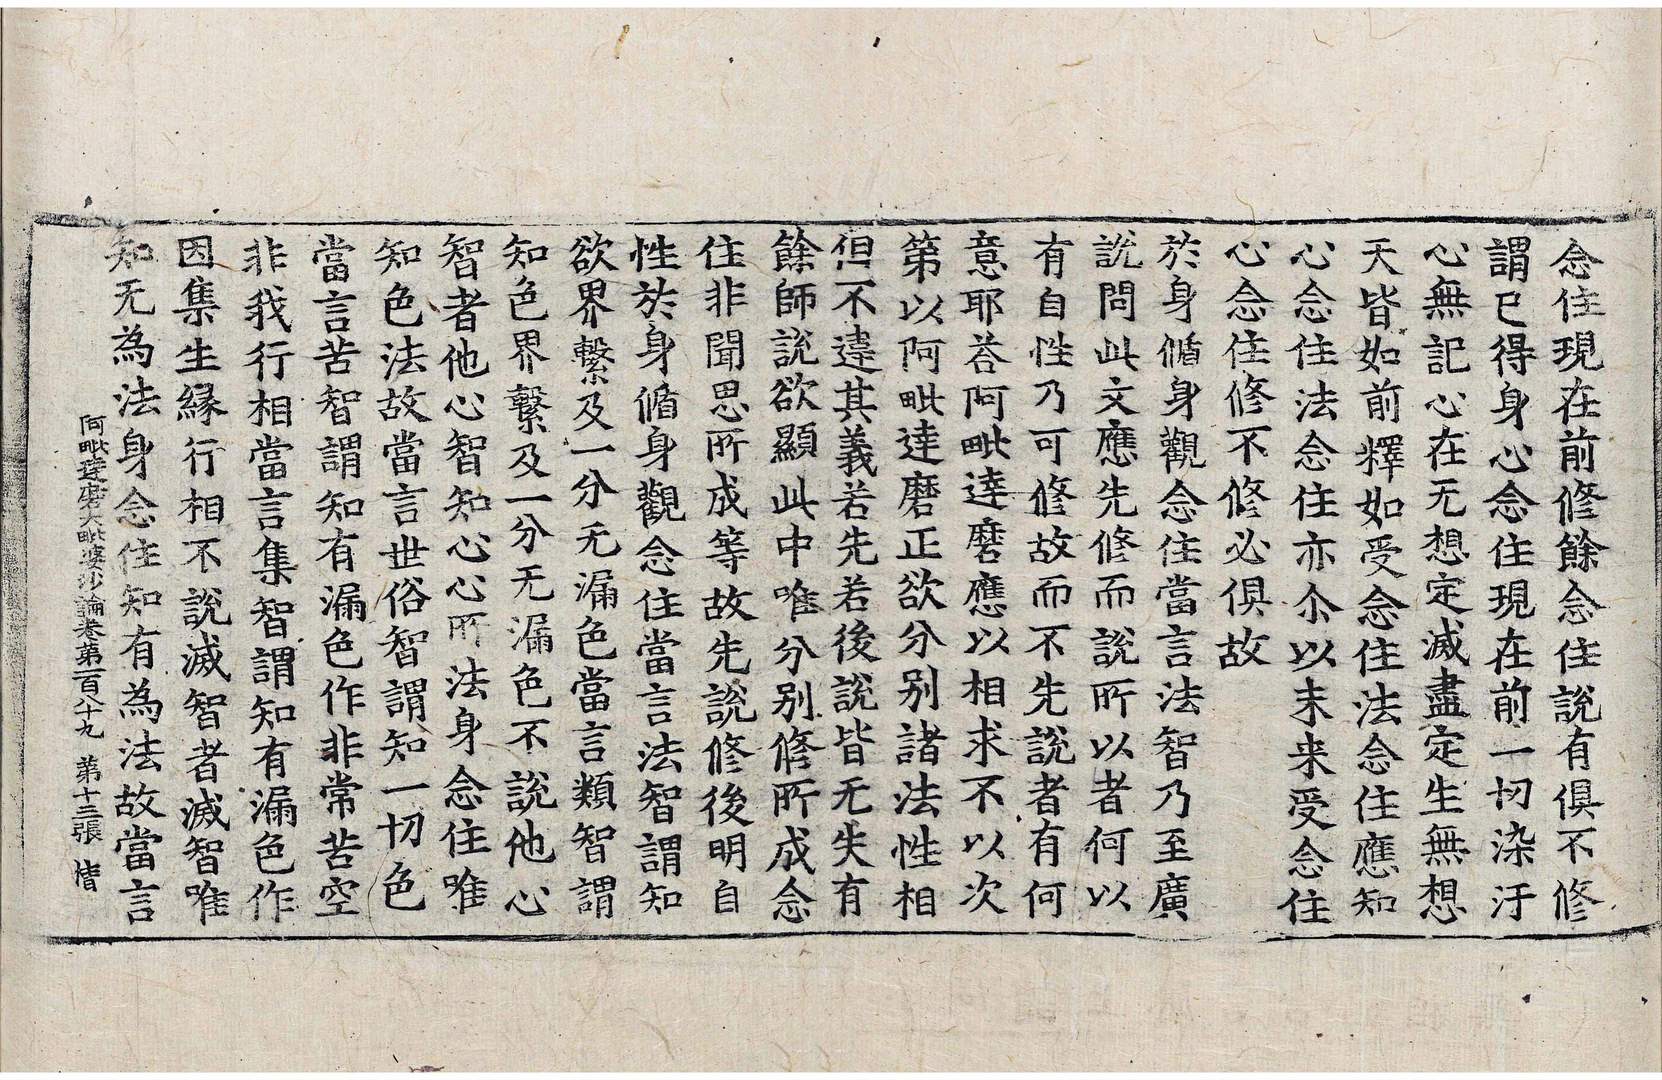 念住現在前修餘念住說有俱不修
謂已得身心念住現在前一切染汙
心無記心在无想定滅盡定生無想
天皆如前釋如受念住法念住應知
心念住法念住亦尒以未来受念住
心念住修不修必俱故
於身循身觀念住當言法智乃至廣
說問此文應先修而說所以者何以
有自性乃可修故而不先說者有何
意耶荅阿毗達磨應以相求不以次
第以阿毗達磨正欲分別諸法性相
但不違其義若先若後說皆无失有
餘師說欲顯此中唯分別修所成念
住非聞思所成等故先說修後明自
性於身循身觀念住當言法智謂知
欲界繫及一分无漏色當言類智謂
知色界繫及一分无漏色不說他心
智者他心智知心心所法身念住唯
知色法故當言世俗智謂知一切色
當言苦智謂知有漏色作非常苦空
非我行相當言集智謂知有漏色作
因集生緣行相不說滅智者滅智唯
知无為法身念住知有為法故當言
阿毗達磨大毗婆沙論卷第一百八十九　第十三張　惜